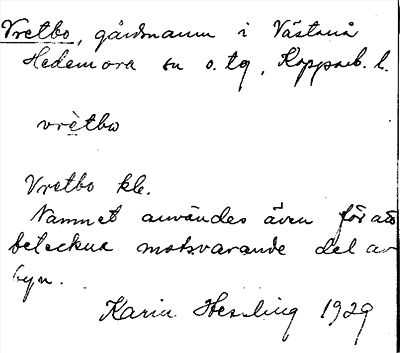 Vretbo, gårdsnamn i Västanå
Hedemora sn o. tg, Kopparb. l.
vrètbo
Vretbo kle.
Namnet användes även för att
beteckna motsvarande del av
byn.
Karin Hesling 1929